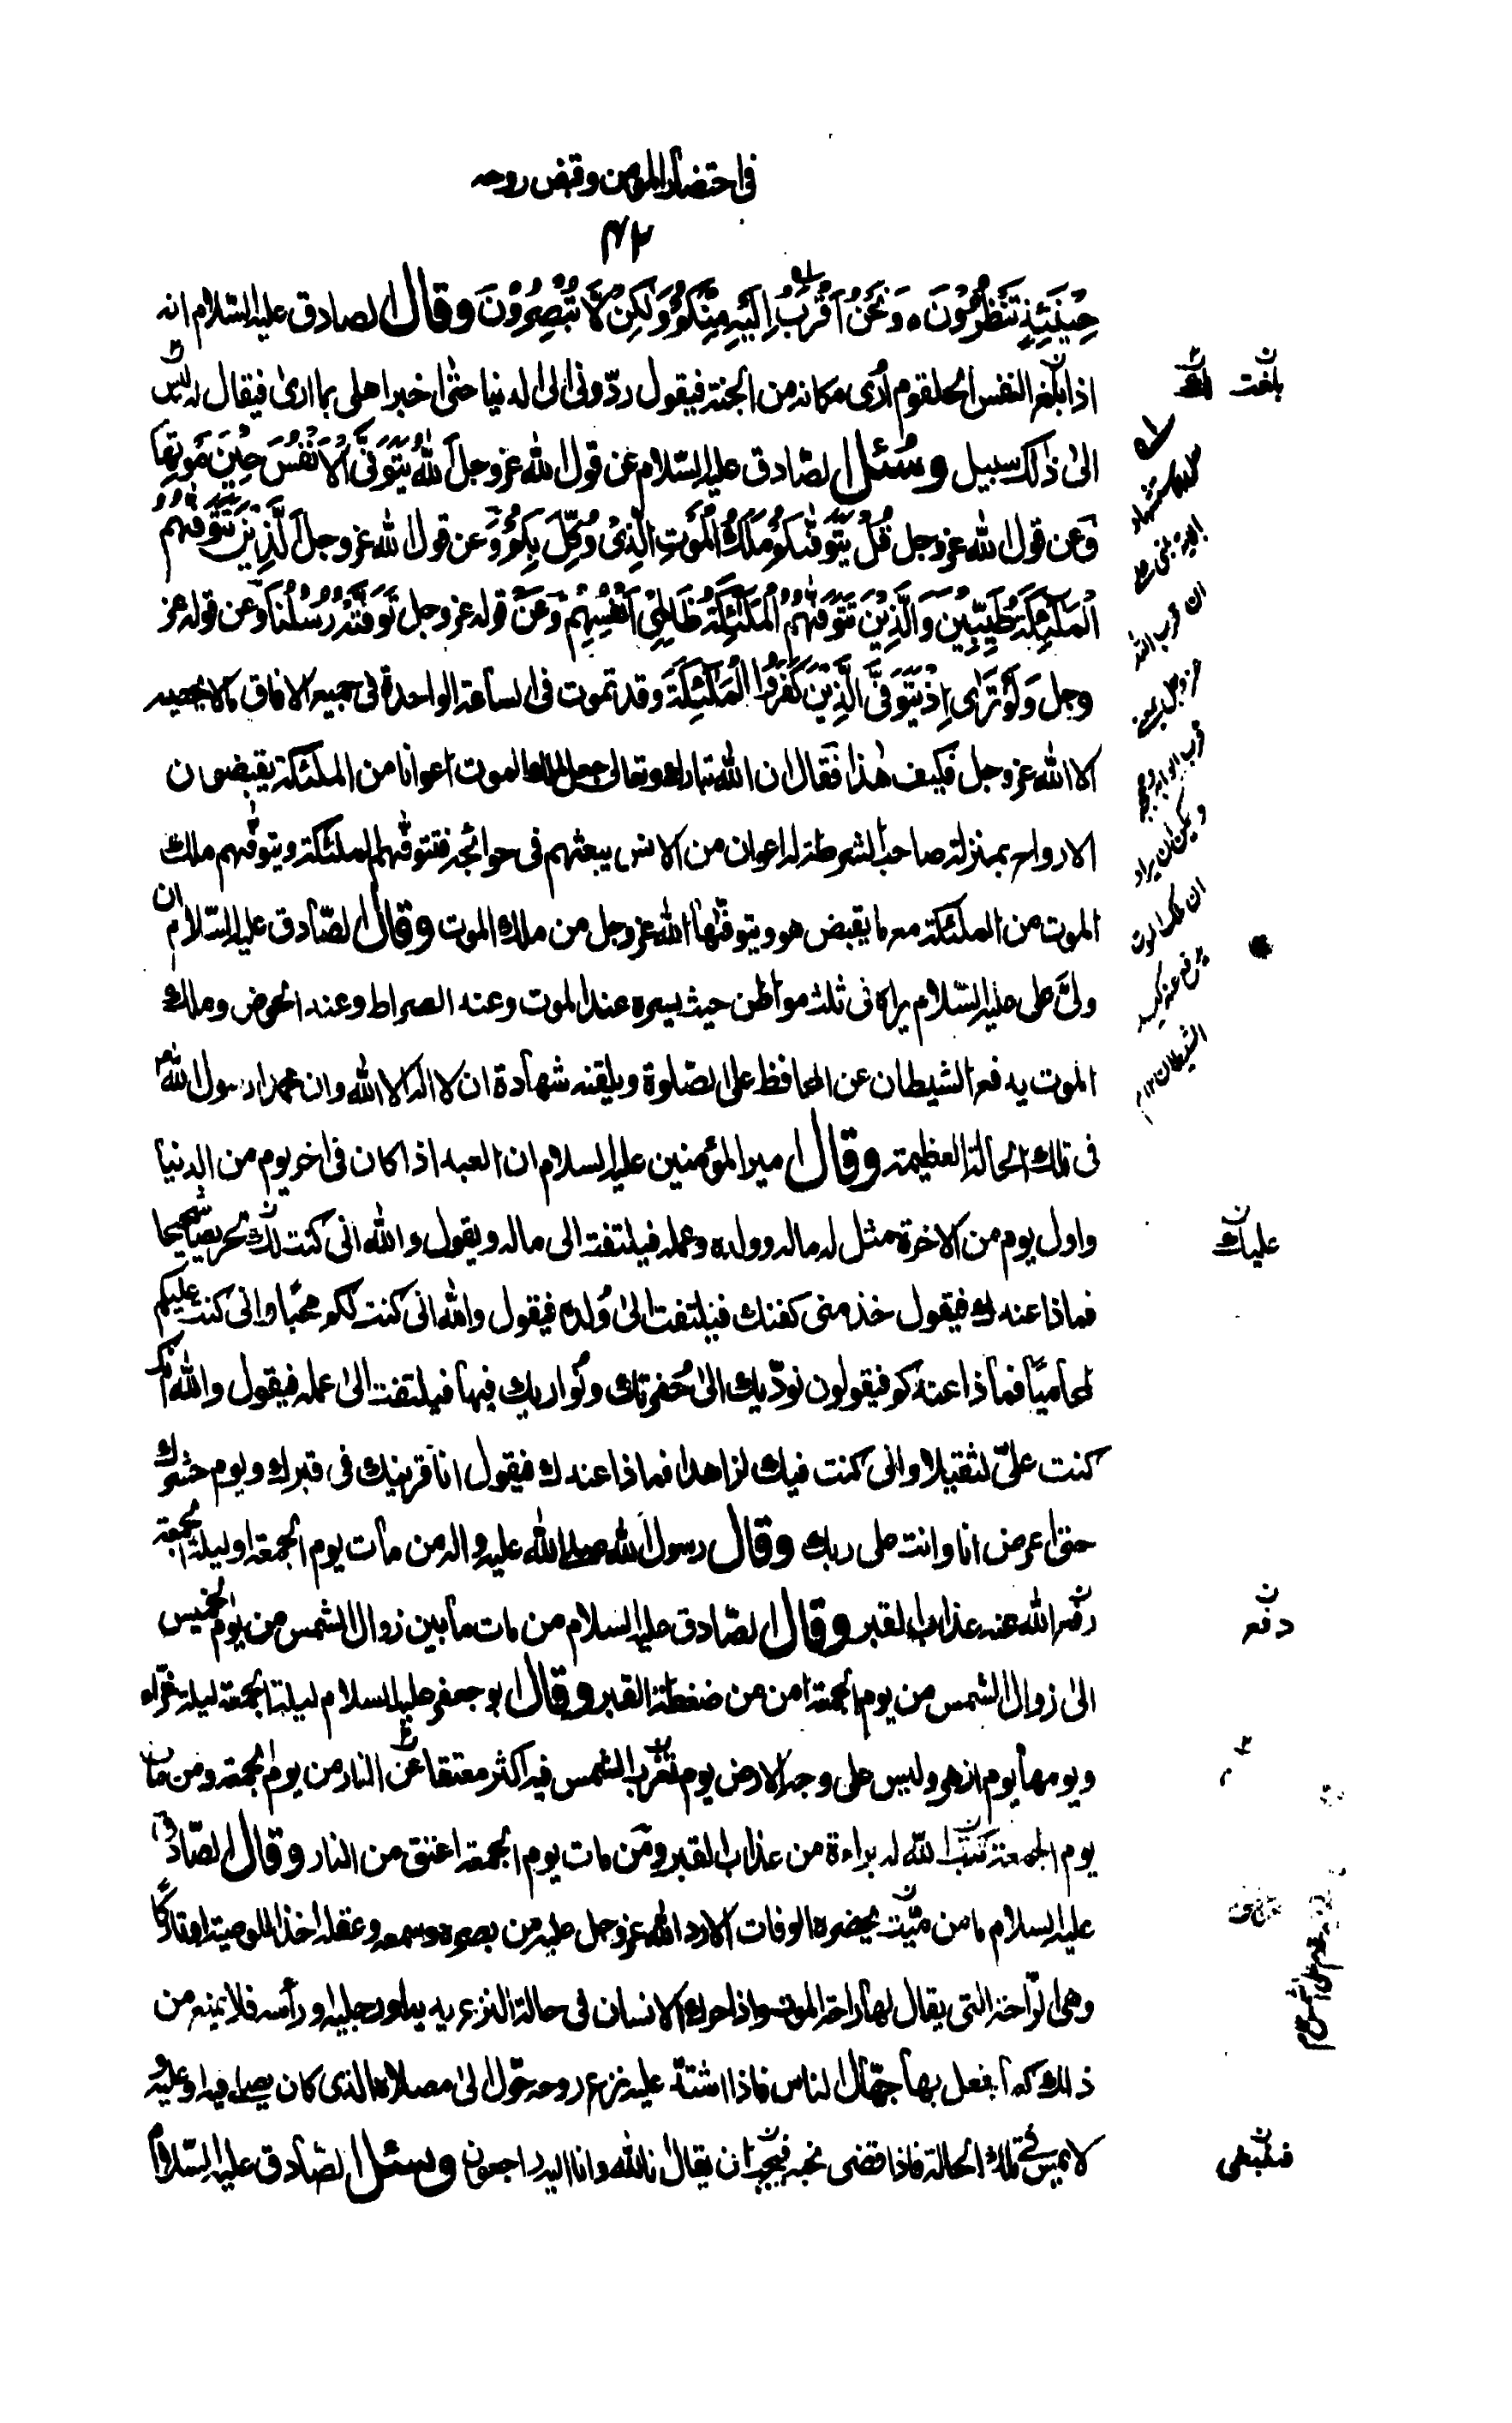 في احتضار المؤمن وقبض روحه
٤٢
حِيْنَئِذٍ تَنْظُرُوْنَ ۰ وَنَحْنُ اَقْرَبُ اِلَيْهِ مِنْكُمْ وَلٰكِنْ لَا تُبْصِرُوْنَ وقال الصادق عليه السلام انه
اذا بلغ النفس الحلقوم اُرى مكانه من الجنة فيقول ردّونى الى الدنيا حتى اخبر اهلى بما ارى فيقال له ليس
الى ذالك سبيل وسُئل الصّادق عليه السّلام عن قول الله عز وجل اَللهُ يَتَوَفَّى الْاَنْفُسَ حِيْنَ مَوْتِهَا
وَعن قول الله عز وجل قُلْ يَتَوَفّٰىكُمْ مَلَكُ الْمَوْتِ الَّذِىْ وُكِّلَ بِكُمْ وَعن قول الله عز وجل اَلَّذِيْنَ تَتَوَفّٰهُمُ
الْمَلٰئِكَةُ طَيِّبِيْنَ وَالَّذِيْنَ تَتَوَفّٰهُمُ الْمَلٰئِكَةُ ظَالِمِىْ اَنْفُسِهِمْ وَعن قوله عز وجل تَوَفَّتْهُ رُسُلُنَا وَعن قوله عز
وجل وَلَوْ تَرٰى اِذْ يَتَوَفَّى الَّذِيْنَ كَفَرُوا الْمَلٰئِكَةُ وقد تموت فى الساعة الواحدة فى جميع الافاق ما لا يحصيه
الا الله عز وجل فكيف هٰذا فقال ان الله تبارك وتعالى جعل لملك الموت اعوانا من الملئكة يقبضون
الارواح بمنزلة صاحب الشرطة له اعوان من الانس يبعثهم فى حوائجه فتتوفّٰهم الملئكة ويتوفّٰهم ملك
الموت من الملئكة مع ما يقبض هو ويتوفّٰها الله عز وجل من ملك الموت وقال الصّادق عليه السّلام ان
ولىَّ على عليه السّلام يراه فى ثلث مواطن حيث يسره عند الموت وعند الصراط وعند الحوض وملك
الموت يدفع الشيطان عن المحافظ على الصّلوة ويلقنه شهادة ان لا اله الا الله وان محمدا رسول الله
فى تلك الحالة العظيمة وقال امير المؤمنين عليه السلام ان العبد اذا كان فى اخر يوم من الدنيا
واول يوم من الاخرة مثل له ماله وولده وعمله فيلتفت الى ماله ويقول والله انى كنت لك لحريصًا شحيحا
فماذا عندك فيقول خذ منى كفنك فيلتفت الى وُلده فيقول والله انى كنت لكم محبًا وانى كنت عليكم
لحاميًا فماذا عندكم فيقولون نودّيك الى حُفرتك ونُواريك فيها فيلتفت الى عمله فيقول والله انك
كنت علىّ لثقيلا وانى كنت فيك لزاهدا فماذا عندك فيقول انا قرينك فى قبرك ويوم حشرك
حتى اعرض انا وانت على ربك وقال رسول الله صلى الله عليه واله من مات يوم الجمعة او ليلة الجمعة
رفع الله عنه عذاب القبر وقال الصّادق عليه السلام من مات ما بين زوال الشمس من يوم الخميس
الى زوال الشمس من يوم الجمعة امن من ضغطة القبر وقال ابو جعفر عليه السلام ليلة الجمعة ليلة غرّاء
ويومها يوم ازهر وليس على وجه الارض يوم تغرب الشمس فيه اكثر معتقا عن النار من يوم الجمعة ومن مات
يوم الجمعة كتب الله له براءة من عذاب القبر ومن مات يوم الجمعة اعتق من النار وقال الصّادق
عليه السلام ما من ميّت يحضره الوفات الا رد الله عز وجل عليه من بصره وسمعه وعقله اخذا للوصية او تاركًا
وهى الرّاحة التى يقال لها راحة الموت واذا حرك الانسان فى حالة النزع يديه او رجليه او رأسه فلا يمنع من
ذالك كما يفعل بها جهّال الناس فاذا اشتدّ عليه نزع روحه حوّل الى مصلاه الذى كان يصلى فيه او عليه
لا يمس فى تلك الحالة فاذا قضى نحبه فيجب ان يقال انا لله وانا اليه راجعون وسئل الصّادق عليه السّلام
بلغت
ان ملك الموت
عليك
دفع
فينبغى